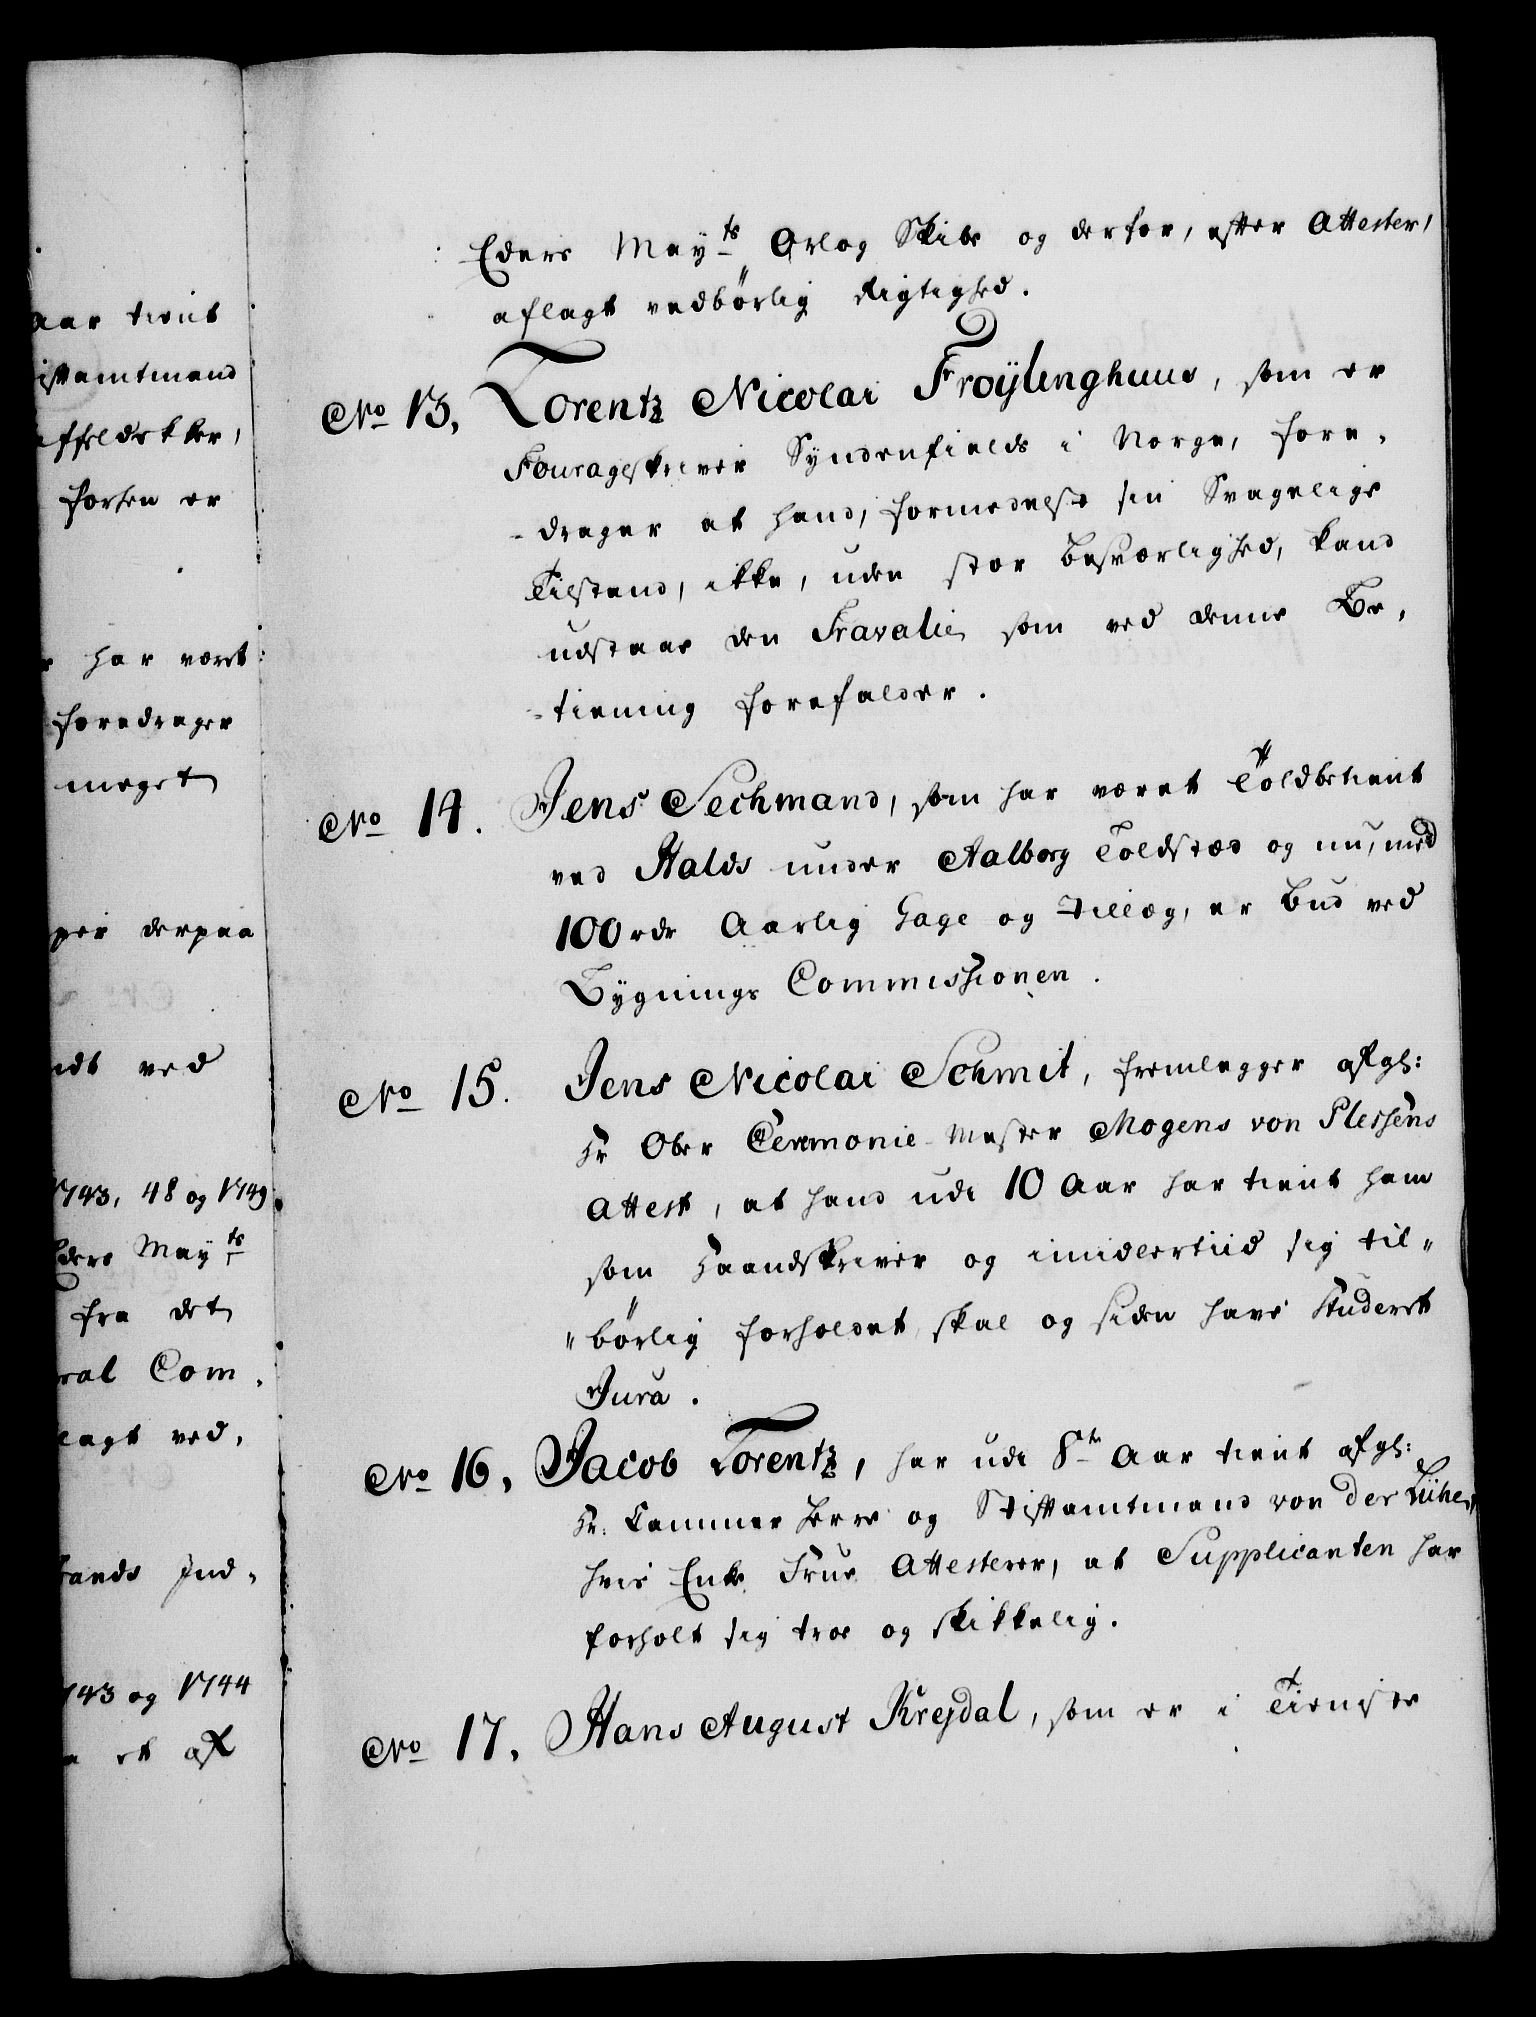 aar tient
istamtmand
affeldekker,
forhen er
har været
foredrager
meget
per derpaa
ndt ved
1743, 48 og 1749
Eders Mayts
fra det
ral Com,
lagt ved,
Lands Ind-
1743 og 1744
et af
Eders Mayts Orlog Skibe og derfor, efter Attester,
aflagt vedbørlig Rigtighed.
No 13, Lorentz Nicolai Froÿlinghuus, som er
Fourageskriver Syndenfields i Norge, fore-
-drager at hand, formedelst sin Svagelige
Tilstand, ikke, uden stor besværlighed, kand
udstaae den Travalie som ved denne Be-
-tiening forefalder.
No 14. Jens Sechmand, som har været Toldbetient
ved Hals under Aalborg Toldsted og nu, med
100 rdr Aarlig Gage og Tillæg, er Bud ved
Bÿgnings Commissionen.
No 15. Jens Nicolai Schmit, fremlegger afgl:
Hr Ober Ceremonie-Mester Mogens von Plessens
Attest, at hand udi 10 Aar har tient ham
som Haandskriver og imidlertiid sig til„
„børlig forholdet, skal og siden have Studeret
Jura.
No 16, Jacob Lorentz, har udi 8te Aar tient afgl:
Hr. Cammer Herre og Stiftamtmand von der Lühe,
hvis Enke Frue Attesterer, at Supplicanten har
forholt sig troe og skikkelig.
No 17, Hans August Krejdal, som er i Tieniste